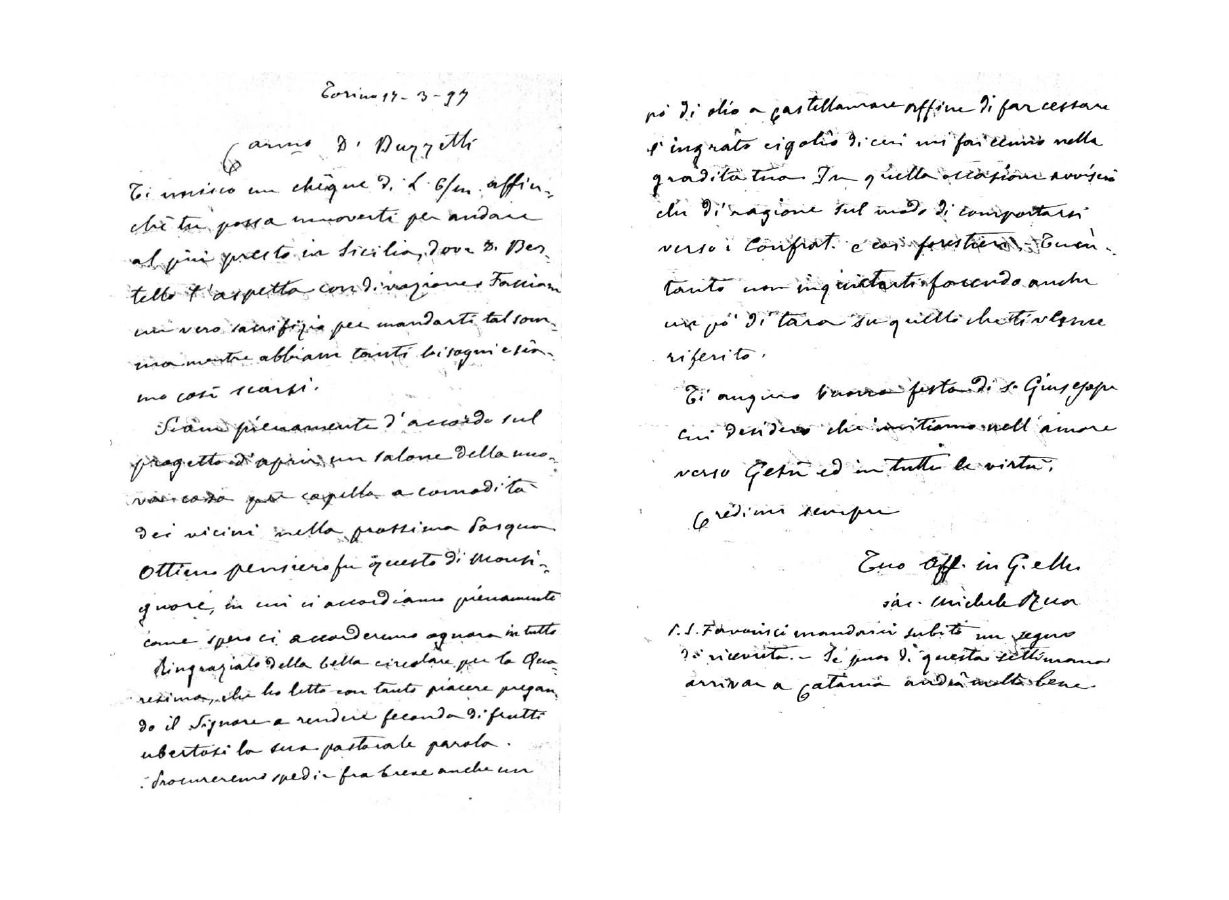 Torino 17-3-97
Carmo D. Buzzetti
Ti unisco un chèque di L 6/m affin-
chè tu possa muoverti per andare
al più presto in Sicilia, dove D. Ber-
tello t'aspetta con divozione. Facciam
un vero sacrifizio per mandarti tal som-
ma mentre abbiam tanti bisogni e sia-
mo così scarsi.
Siam pienamente d'accordo sul
progetto d'aprir un salone della nuo-
va casa per capella a comodità
dei vicini nella prossima Pasqua
Ottimo pensiero fu questo di Monsi-
gnore, in cui ci accordiamo pienamente
come spero ci accorderemo ognora in tutto
Ringrazialo della bella circolare per la Qua-
resima, che ho letto con tanto piacere pregan-
do il Signore a rendere feconda di frutti
ubertosi la sua pastorale parola.
Procureremo spedir fra breve anche un
pò di olio a Castellamare affine di far cessare
l'ingrato cigolio di cui mi fai cenno nella
gradita tua. In quella occasione
di ragione sul modo di comportarsi
verso i Confrat. e coi forestieri. - Tu in-
tanto non inquietarti facendo anche
un pò di tara su quello che ti venne
riferito.
Ti auguro buona festa di S. Giuseppe
cui desidero che imitiamo nell'amore
verso Gesù ed in tutte le virtù.
Credimi sempre
Tuo aff. in G. e M.
sac. Michele Rua
P.S. Favorisci mandarci subito un segno
di ricevuta. - Se puoi di questa settimana
arrivar a Catania andrà molto bene